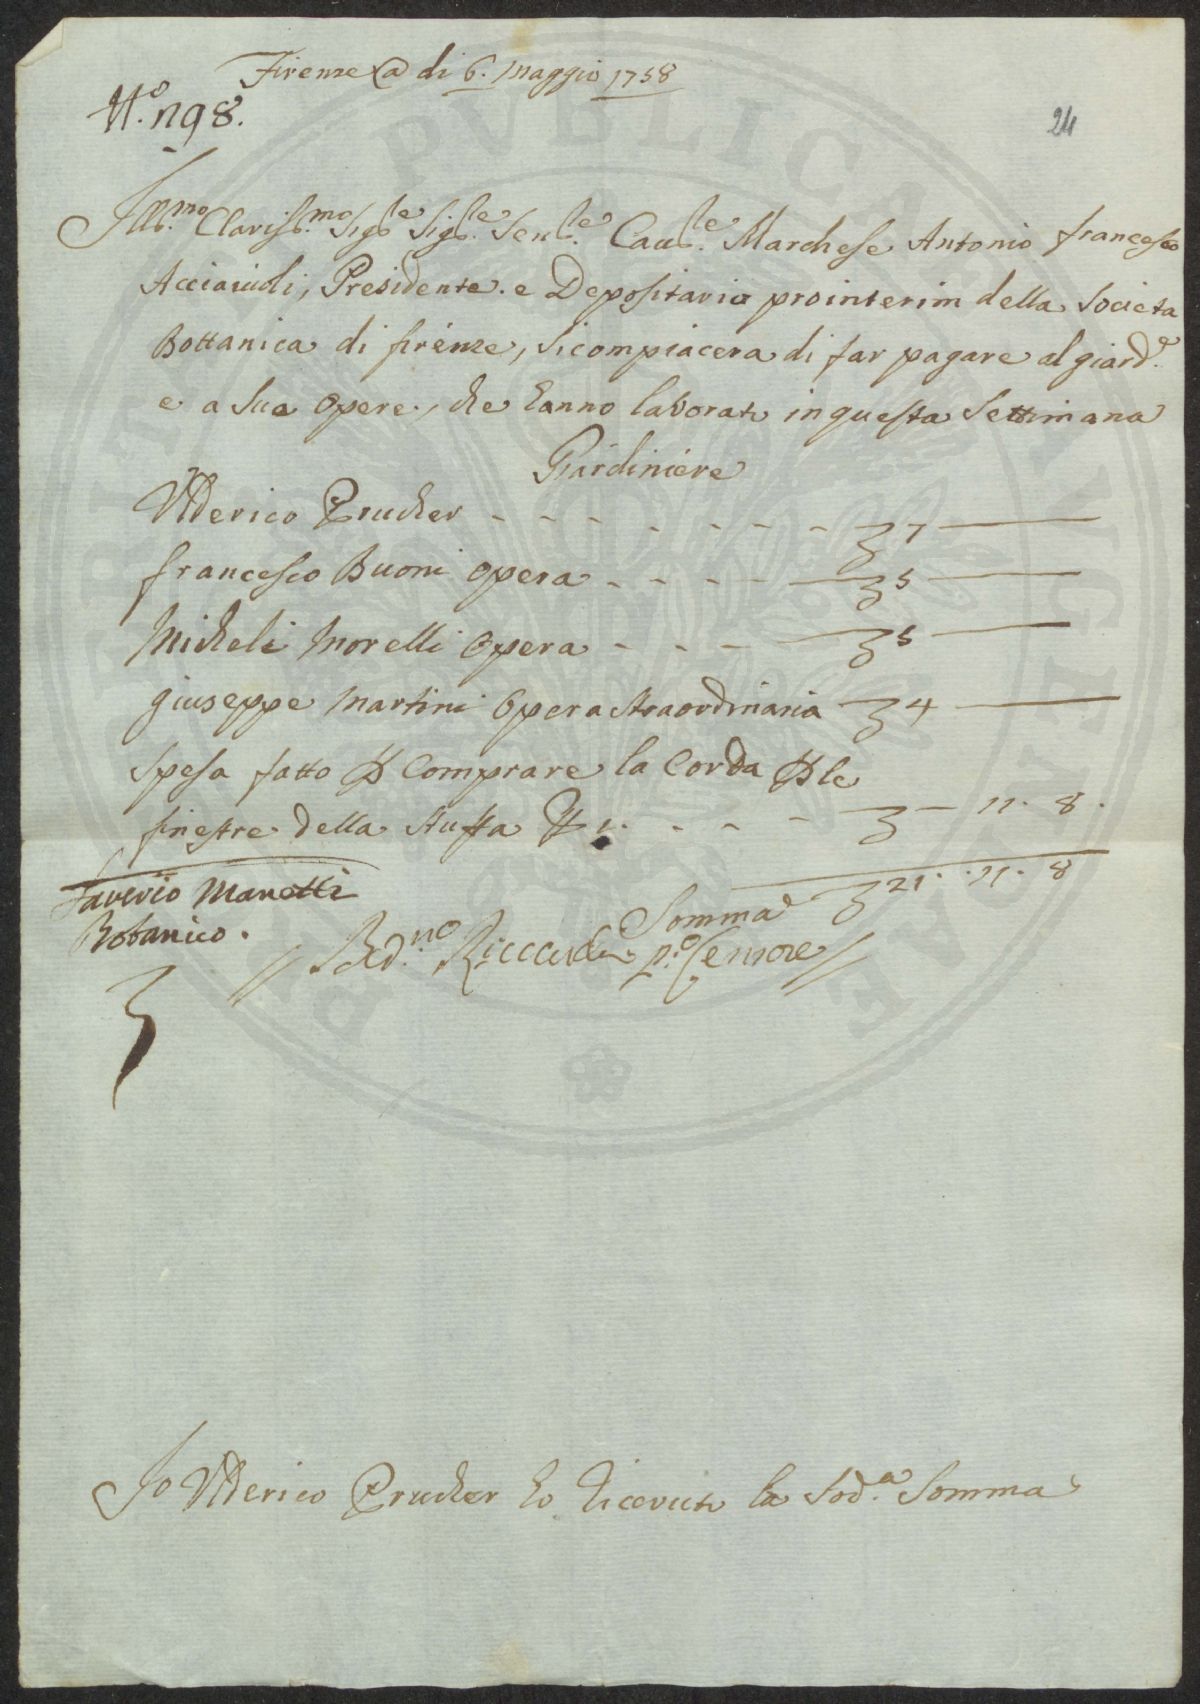 Firenze @ di 6. Maggio 1758
N.º 1198.
24
Ill.mo Clariss.mo Sig.le Sig.le Sen.le Cau.le Marchese Antonio francesco
Acciaiuoli, Presidente e Depositario prointerim della Societa
Bottanica di firenze, Si compiacera di far pagare al giard.e
e a Sua Opere, che hanno laborati in questa Settimana
Giardiniere
Ulderico Prucher - - - - - - - 7 —
francesco Buoni Opera - - - - 5 —
Micheli Morelli Opera - - - 5 —
giuseppe Martini Opera straordinaria 4 —
Spesa fatto p Comprare la Corda p le
finestre della Stuffa - - - - 11. 8.
Somma 21. 11. 8
Saverio Manetti
Botanico.
Bed.no Riccardi p.o Censore
Io Ulderico Prucher ho riceuuti la Sod.a Somma